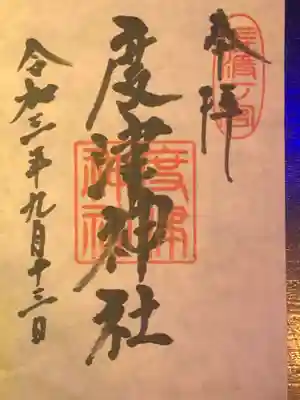 奉拝
佐渡一宮
度津神社
度津神社
令和三年九月十三日